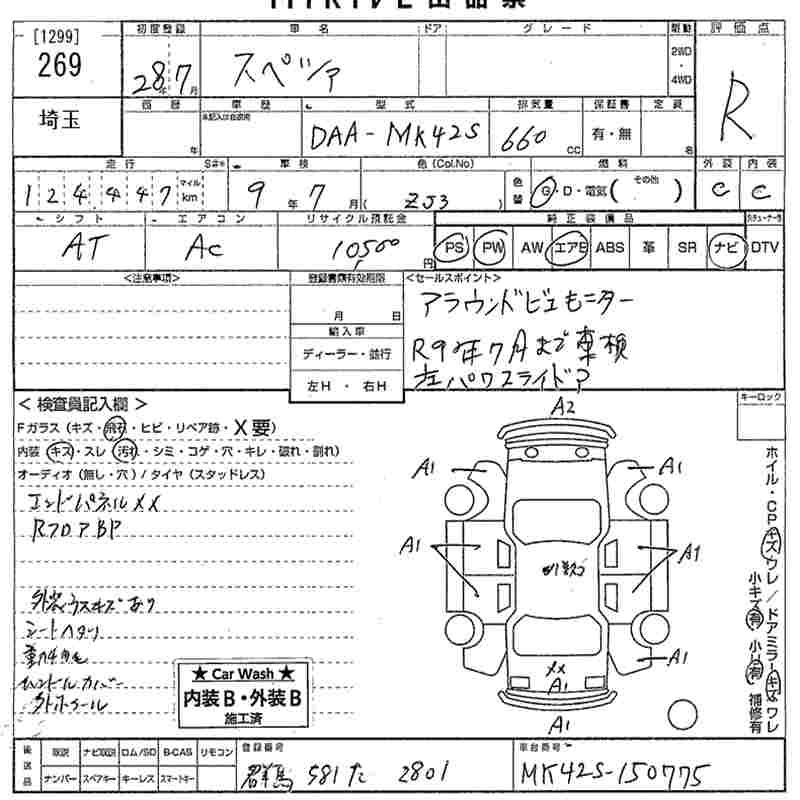 [1299]
269
埼玉
初度登録 車名 ドア グレード 駆動 評価点
28年7月 スペーシア 2WD・4WD R
歴 車歴 型式 排気量 保証書 定員
未記入は自家用
年 DAA-MK42S 660cc 有・無 名
走行 車検 色(Col.No) 燃料 外装 内装
124,447 マイル km 9年7月 (ZJ3) 色替 G・D・電気(その他 ) C C
シフト エアコン リサイクル預託金 純正装備品
AT AC 10,500円 PS PW AW エアB ABS 革 SR ナビ DTV
<注意事項> 登録書類有効期限 <セールスポイント>
月 日 アラウンドビューモニター
輸入車
ディーラー・並行 R9年7月まで車検
左H・右H 左パワスライドドア
<検査員記入欄> キーロック
Fガラス(キズ・飛石・ヒビ・リペア跡・X要)
内装(キズ・スレ・汚れ・シミ・コゲ・穴・キレ・破れ・割れ)
オーディオ(無し・穴)/タイヤ(スタッドレス)
エンドパネルXX
RフロアBP
外装ウスキズあり
シートヘタリ
ハンドルカバー
社外ホイール
★ Car Wash ★
内装B・外装B
施工済
A2
A1 A1
A1 A1
XX
A1 A1
A1
ホイル・CPキズ・ワレ/ドアミラーキズ・ワレ
小キズ有 小凹有 補修有
後送品 取説 ナビ取説 ロム/SD B-CAS リモコン 登録番号 車台番号
ナンバー スペアキー キーレス スマートキー 群馬 581 た 2801 MK42S-150775